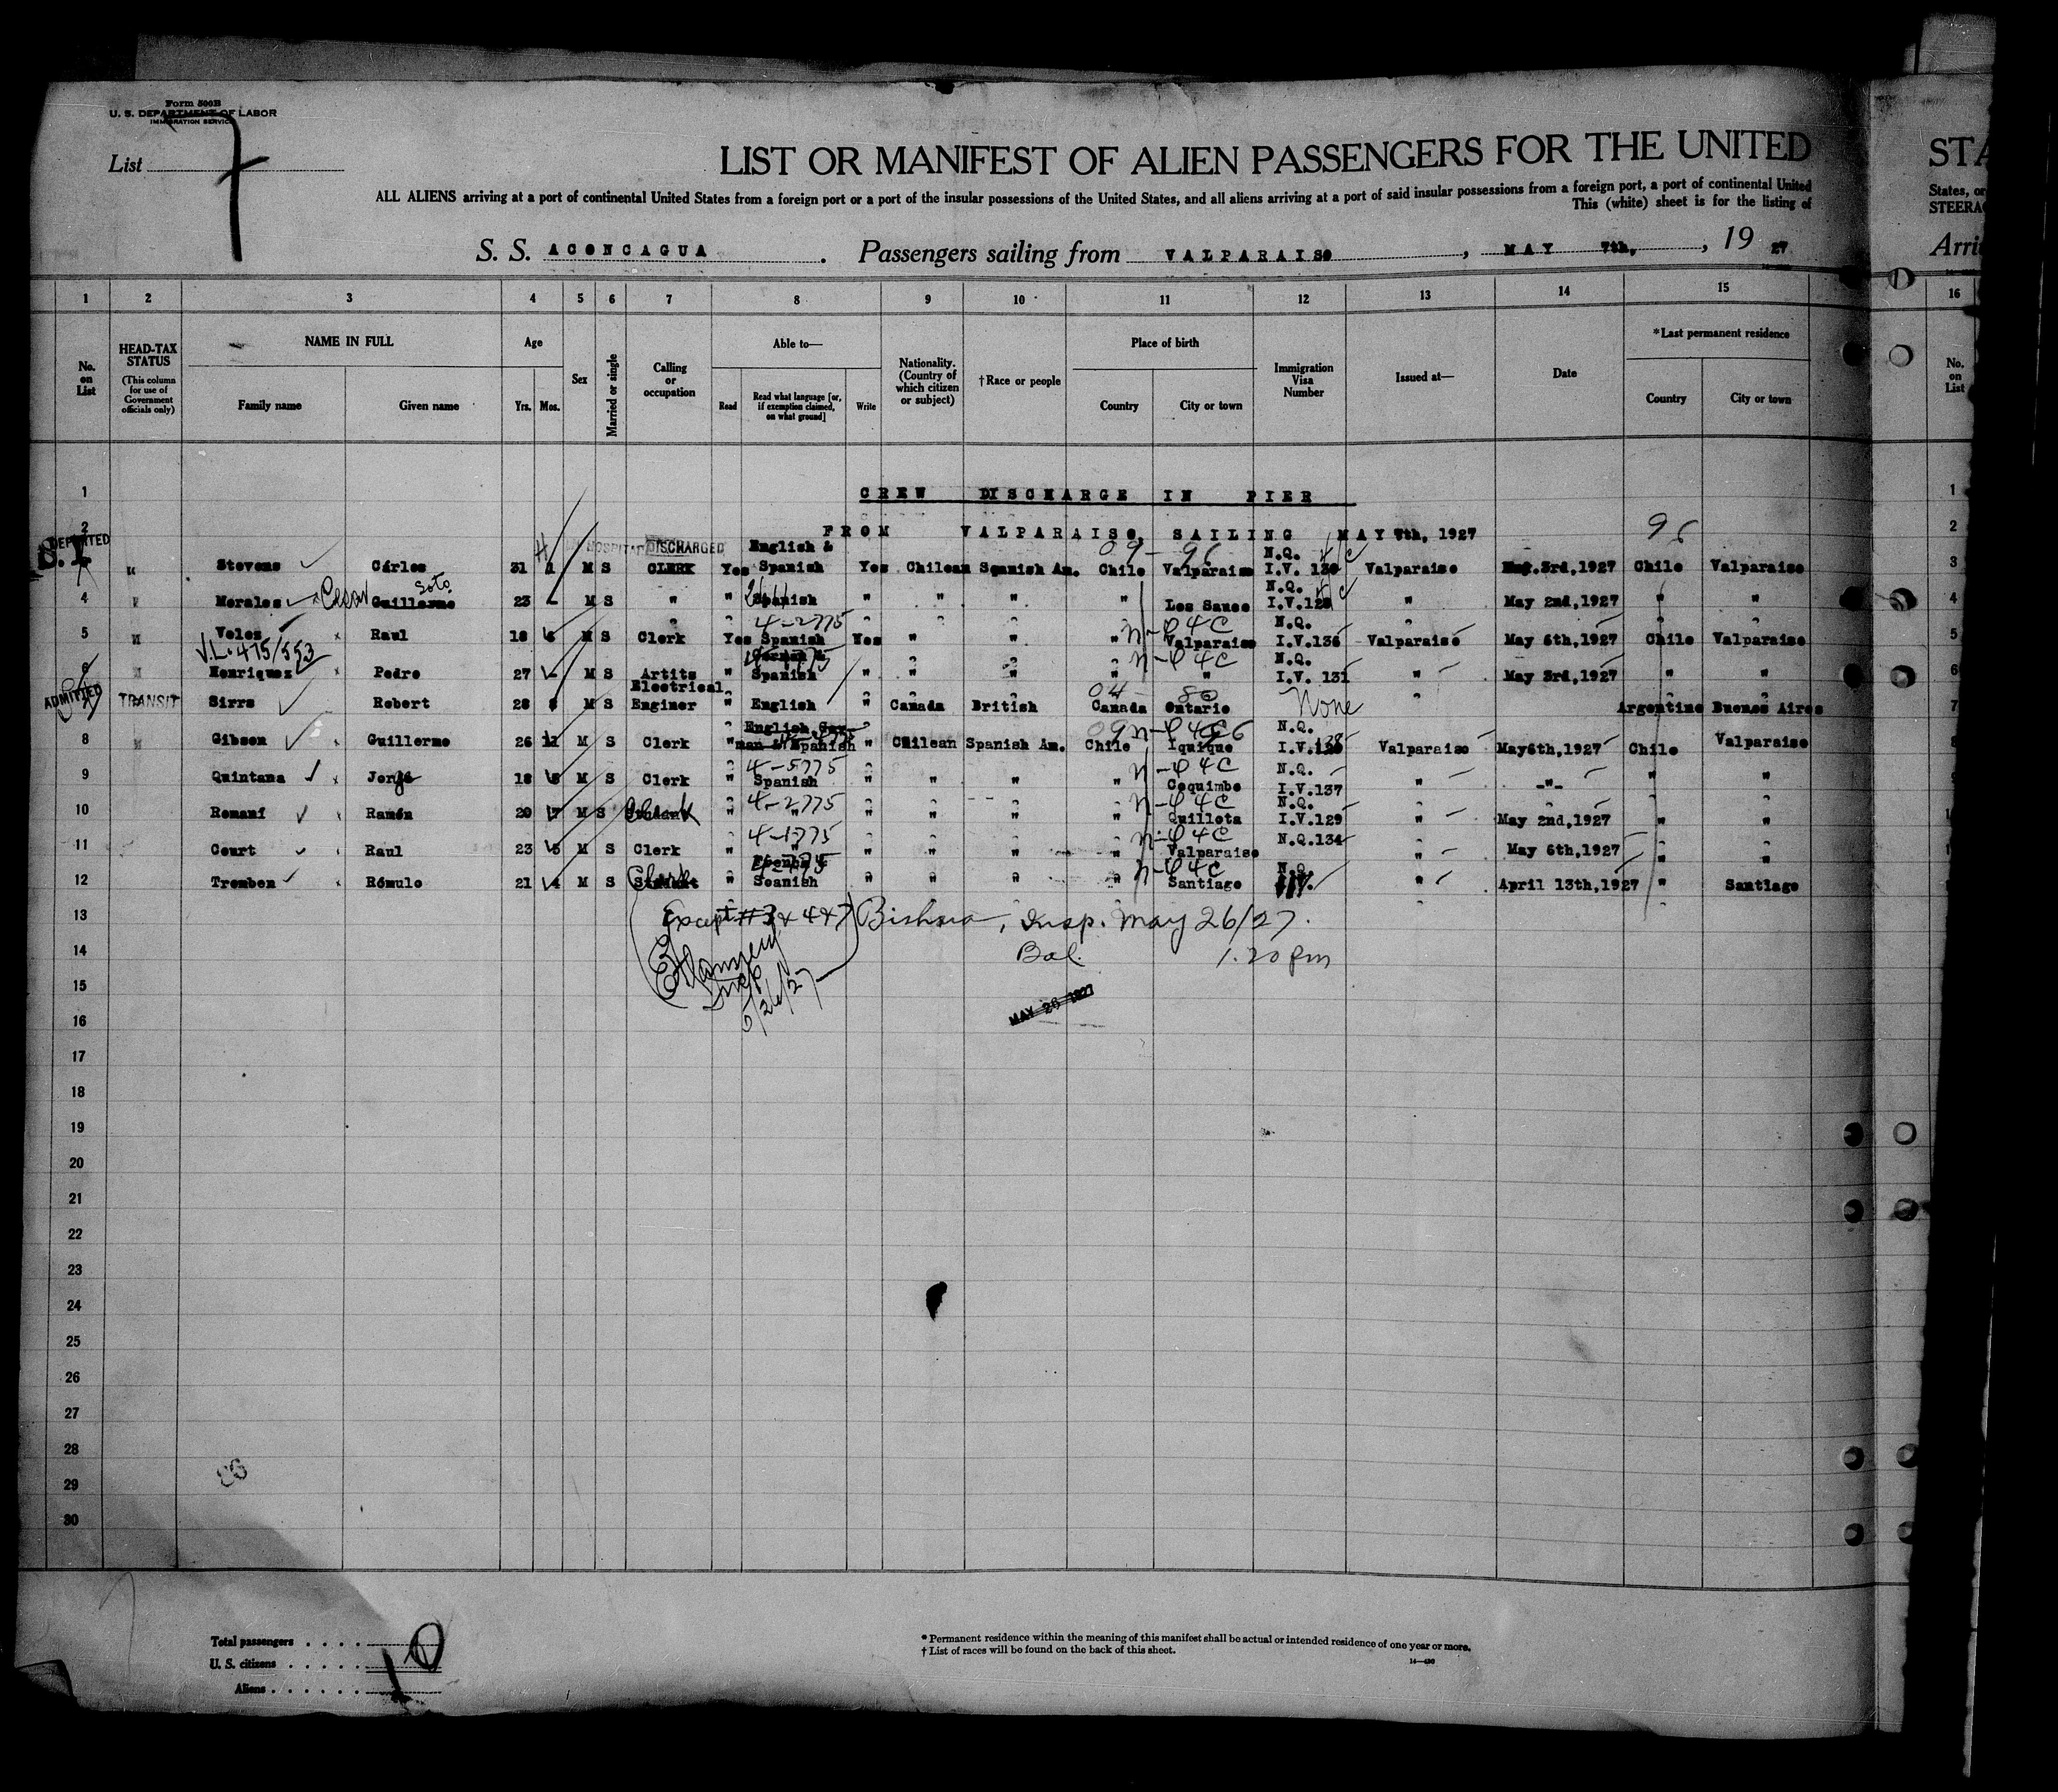 Form 500B
U. S. DEPARTMENT OF LABOR
IMMIGRATION SERVICE
List 7
LIST OR MANIFEST OF ALIEN PASSENGERS FOR THE UNITED STA
ALL ALIENS arriving at a port of continental United States from a foreign port or a port of the insular possessions of the United States, and all aliens arriving at a port of said insular possessions from a foreign port, a port of continental United States, or
This (white) sheet is for the listing of STEERA
S. S. ACONCAGUA. Passengers sailing from VALPARAISO, MAY 7th, 19 27 Arri
1 2 3 4 5 6 7 8 9 10 11 12 13 14 15 16
No. on List
HEAD-TAX STATUS
(This column for use of Government officials only)
NAME IN FULL
Family name Given name
Age
Yrs. Mos.
Sex
Married or single
Calling or occupation
Able to—
Read
Read what language [or, if exemption claimed, on what ground]
Write
Nationality. (Country of which citizen or subject)
† Race or people
Place of birth
Country City or town
Immigration Visa Number
Issued at—
Date
*Last permanent residence
Country City or town
No. on List
1 CREW DISCHARGE IN PIER 1
2 FROM VALPARAISO, SAILING MAY 7th, 1927 96 2
S.I. DEPORTED HOSPITAL DISCHARGED 09 - 96
3 Stevens Cárlos 31 1 M S CLERK Yes English & Spanish Yes Chilean Spanish Am. Chile Valparaiso N.Q. I.V. 130 Valparaiso 3rd,1927 Chile Valparaiso 3
4 Morales Cesar Guillermo Soto 23 - M S " " Spanish " " " " Los Sauce N.Q. I.V.128 " May 2nd,1927 " " 4
4-2775 n-04C
5 Velez Raul 18 M S Clerk Yes Spanish Yes " " " Valparaiso N.Q. I.V.136 Valparaiso May 6th,1927 Chile Valparaiso 5
V.L. 475/553 n-04C
6 Henriquez Pedro 27 - M S Artits " German & Spanish " " " " " N.Q. I.V. 131 " May 3rd,1927 " " 6
ADMITTED 04 - 80
7 TRANSIT Sirrs Robert 28 M S Electrical Enginer " English " Canada British Canada Ontario None " Argentine Buenos Aires 7
8 Gibson Guillermo 26 11 M S Clerk " English, German & Spanish " Chilean Spanish Am. Chile Iquique N.Q. I.V. Valparaiso May 6th,1927 Chile Valparaiso 8
4-5775 n-04C
9 Quintana Jorge 18 8 M S Clerk " Spanish " " " " Coquimbo N.Q. I.V.137 " -"- " " 9
4-2775 n-04C
10 Romaní Ramón 20 7 M S " " " " " " Quillota N.Q. I.V.129 " May 2nd,1927 " "
4-1775 n-04C
11 Court Raul 23 5 M S Clerk " " " " " " Valparaiso N.Q.134 " May 6th,1927 " "
n-04C
12 Tromben Rómulo 21 4 M S Clerk Student " French & Spanish " " " " Santiago N.Q. " April 13th,1927 " Santiago
13 Except #3 & 4 & 7 Insp. May 26/27.
14 Bal. 1.20 pm
Insp
5/26/27
15
16 MAY 26 1927
17
18
19
20
21
22
23
24
25
26
27
28
29
30
86
Total passengers . . . . 10
U. S. citizens . . . . .
Aliens . . . . . . 10
* Permanent residence within the meaning of this manifest shall be actual or intended residence of one year or more.
† List of races will be found on the back of this sheet.
14—430